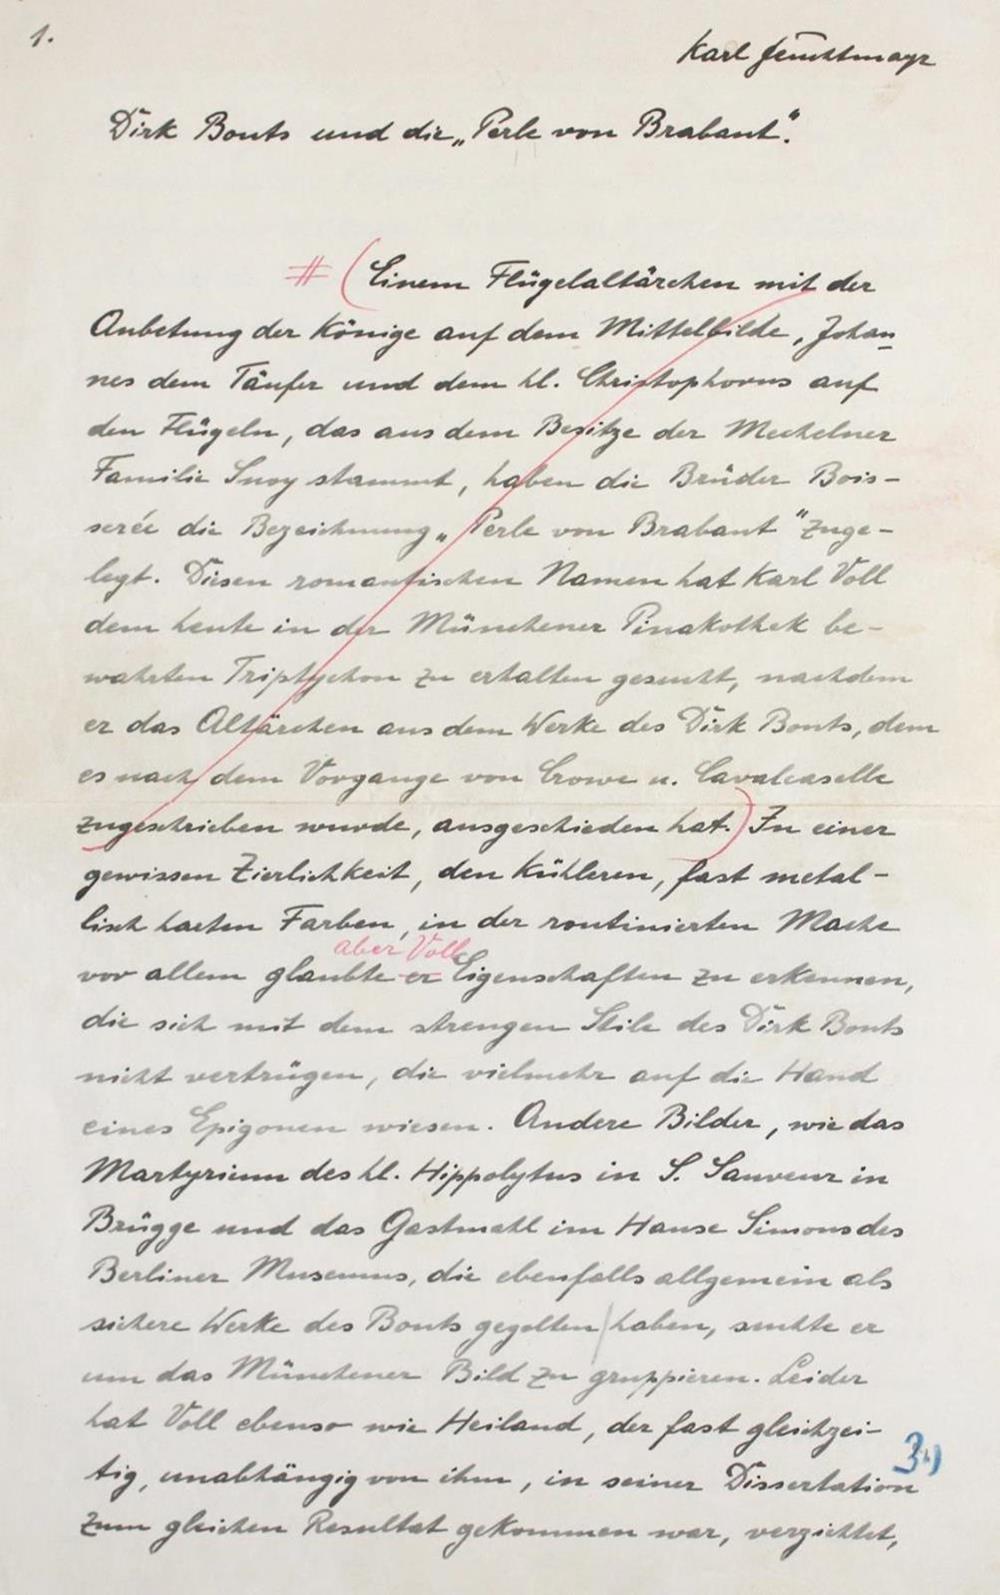 1.
Karl Feuchtmayr
Dirk Bouts und die „Perle von Brabant".
# (Einem Flügelaltärchen mit der
Anbetung der Könige auf dem Mittelbilde, Johan=
nes dem Täufer und dem hl. Christophorus auf
den Flügeln, das aus dem Besitze der Mechelner
Familie Snoy stammt, haben die Brüder Bois-
serée die Bezeichnung „Perle von Brabant" zuge-
legt. Diesen romantischen Namen hat Karl Voll
dem heute in der Münchener Pinakothek be-
wahrten Triptychon zu erhalten gesucht, nachdem
er das Altärchen aus dem Werke des Dirk Bouts, dem
es nach dem Vorgange von Crowe u. Cavalcaselle
zugeschrieben wurde, ausgeschieden hat.) In einer
gewissen Zierlichkeit, den kühleren, fast metal-
lisch harten Farben, in der routinierten Mache
aber Voll
vor allem glaubte er Eigenschaften zu erkennen,
die sich mit dem strengen Stile des Dirk Bouts
nicht vertrügen, die vielmehr auf die Hand
eines Epigonen wiesen. Andere Bilder, wie das
Martyrium des hl. Hippolytus in S. Sauveur in
Brügge und das Gastmahl im Hause Simons des
Berliner Museums, die ebenfalls allgemein als
sichere Werke des Bouts gegolten haben, suchte er
um das Münchener Bild zu gruppieren. Leider
hat Voll ebenso wie Heiland, der fast gleichzei-
tig, unabhängig von ihm, in seiner Dissertation
zum gleichen Resultat gekommen war, verzichtet,